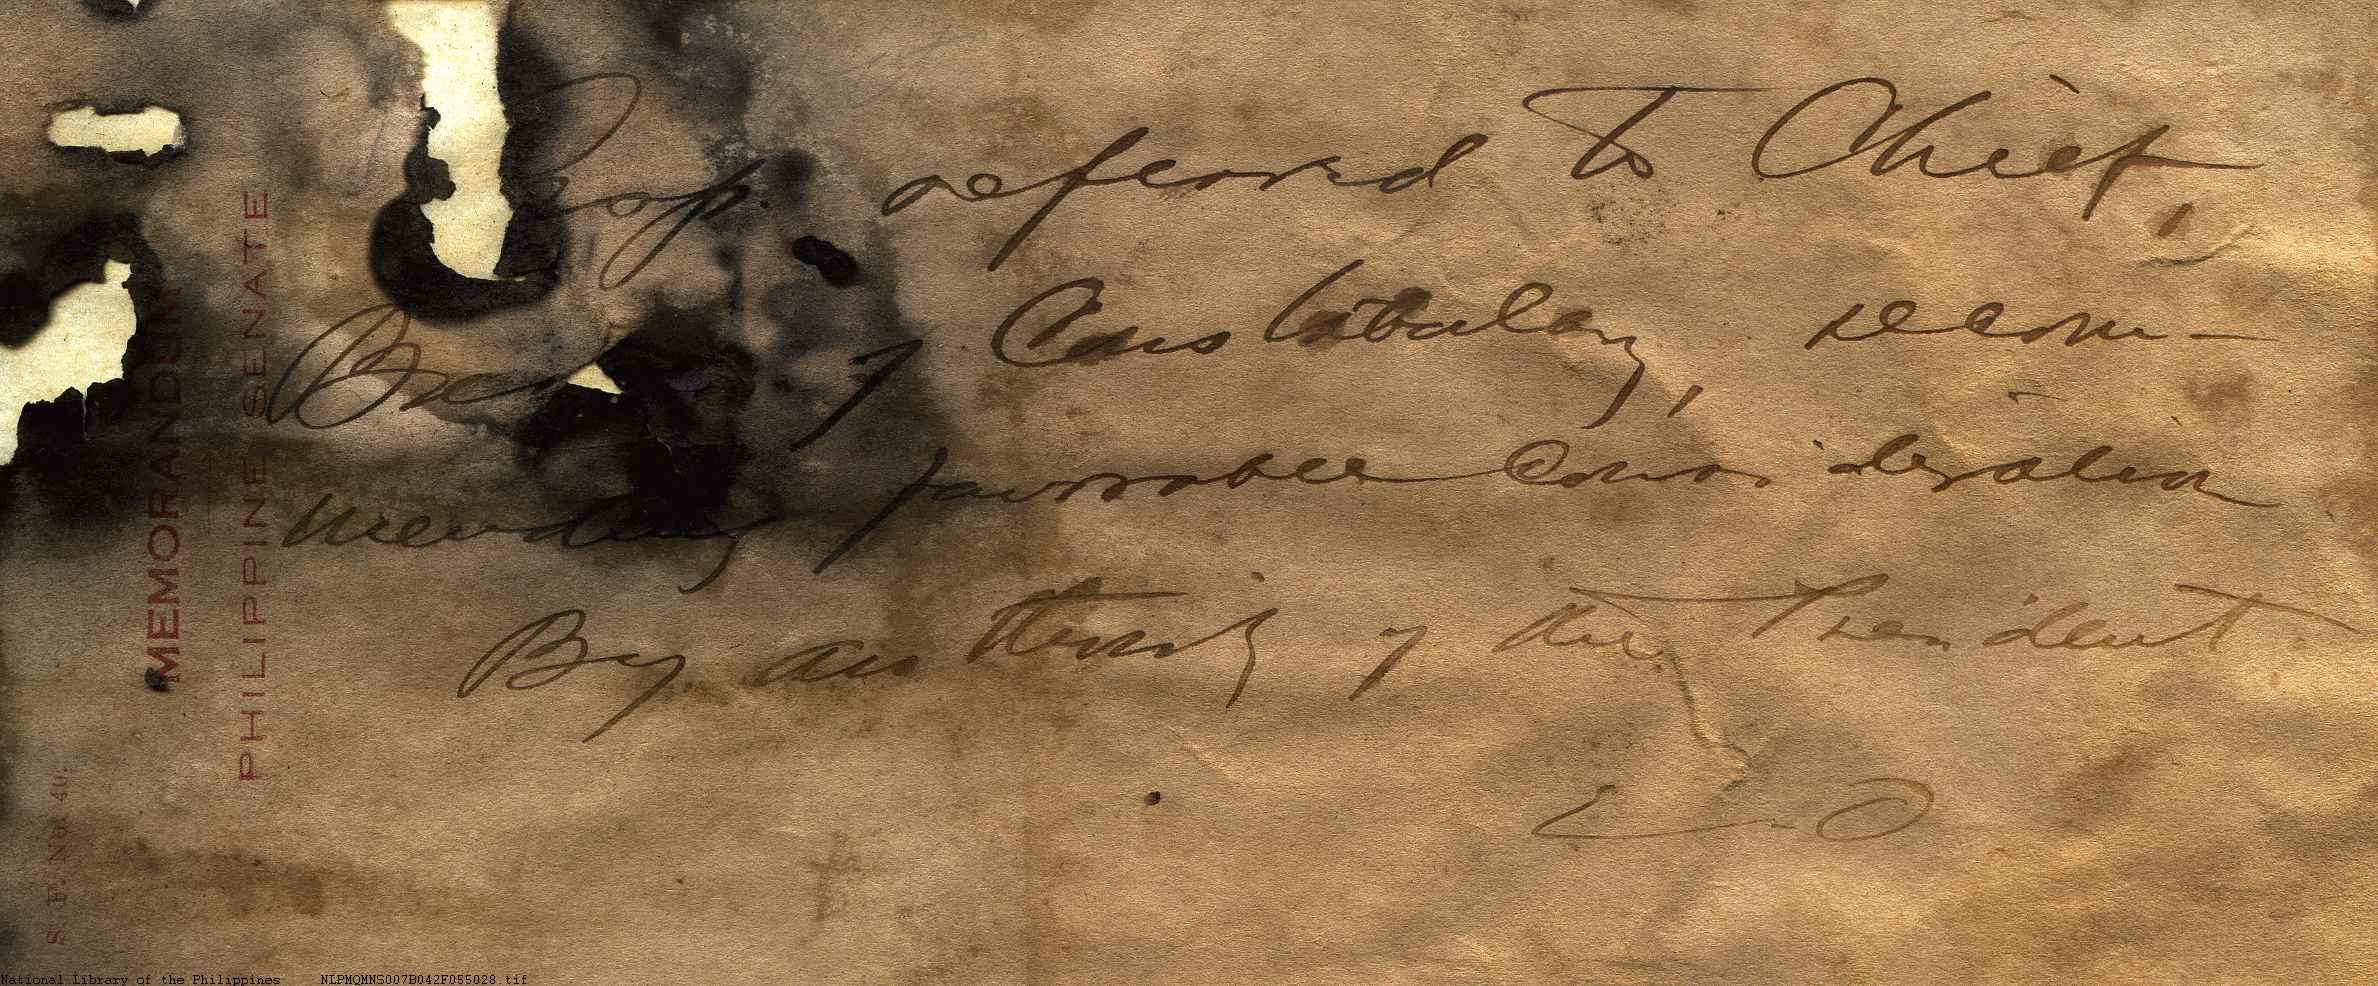 Resp. referred to Chief,
of Constabulary, recom-
mending favorable consideration
By authority of the President.
MEMORANDUM
PHILIPPINE SENATE
S. F. No. 40.
National Library of the Philippines NLPMQMNS007B042F055028.tif